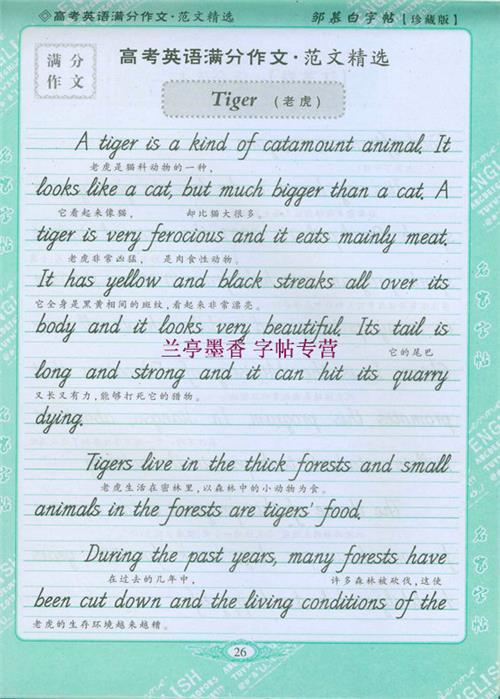 ◇高考英语满分作文·范文精选
邹慕白字帖【珍藏版】
满分
作文
高考英语满分作文·范文精选
Tiger (老虎)
A tiger is a kind of catamount animal. It
老虎是猫科动物的一种，
looks like a cat, but much bigger than a cat. A
它看起来像猫， 却比猫大很多。
tiger is very ferocious and it eats mainly meat.
老虎非常凶猛， 是肉食性动物。
It has yellow and black streaks all over its
它全身是黑黄相间的斑纹，看起来非常漂亮。
body and it looks very beautiful. Its tail is
兰亭墨香 字帖专营
它的尾巴
long and strong and it can hit its quarry
又长又有力，能够打死它的猎物。
dying.
Tigers live in the thick forests and small
老虎生活在密林里，以森林中的小动物为食。
animals in the forests are tigers' food.
During the past years, many forests have
在过去的几年中， 许多森林被砍伐，这使
been cut down and the living conditions of the
老虎的生存环境越来越糟。
26